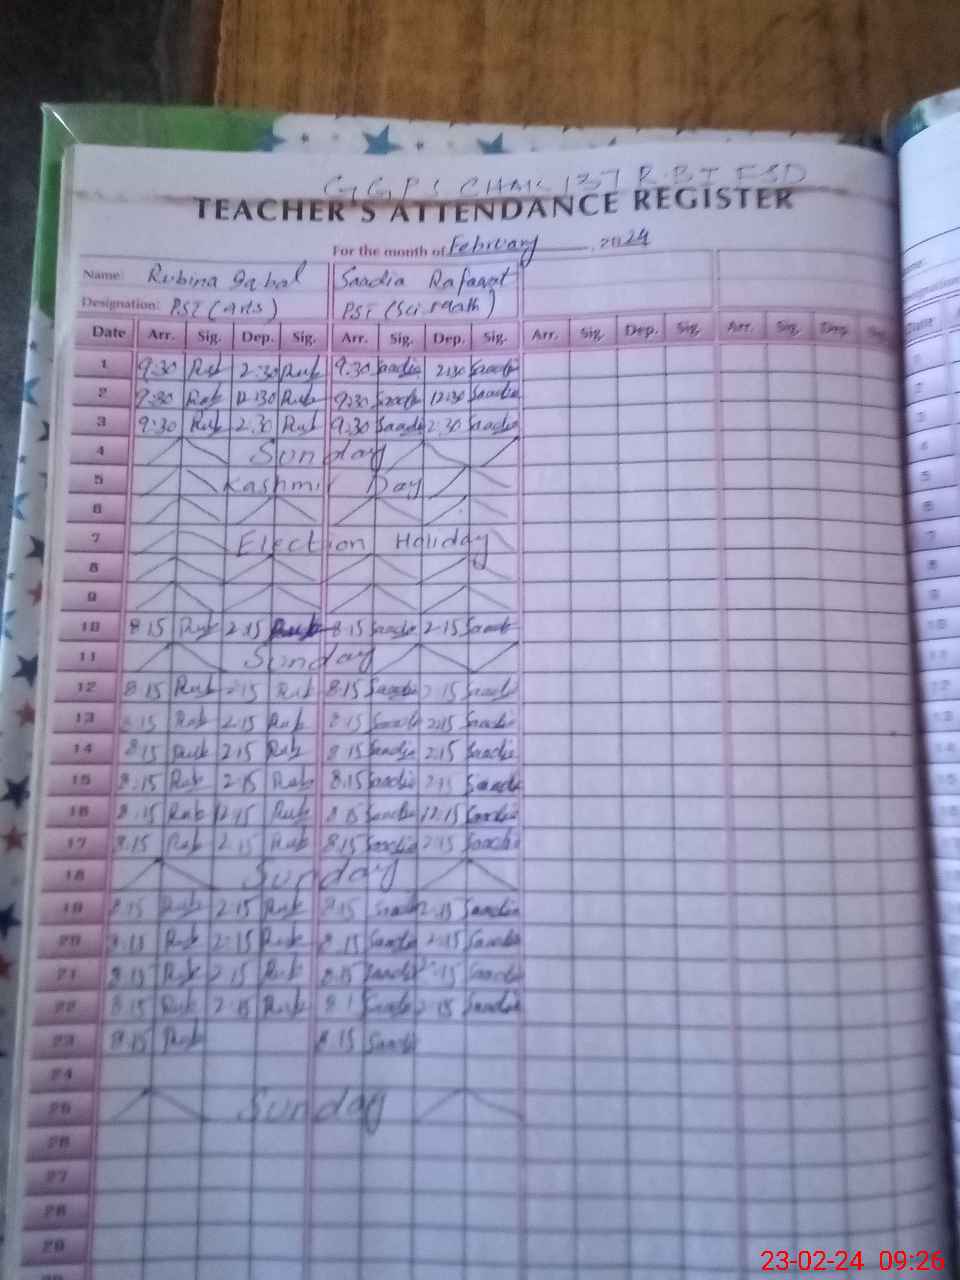 GGPS CHAK 137 R.B T FSD
TEACHER'S ATTENDANCE REGISTER
For the month of February, 2024
Name: Rubina Iqbal Saadia Rafaqat
Designation: PST (Arts) PST (Sci Math)
Date Arr. Sig. Dep. Sig. Arr. Sig. Dep. Sig. Arr. Sig. Dep. Sig. Arr. Sig. Dep. Sig.
1 9:30 Rub 2:30 Rub 9:30 Saadia 2:30 Saadia
2 9:30 Rub 12:30 Rub 9:30 Saadia 12:30 Saadia
3 9:30 Rub 2:30 Rub 9:30 Saadia 2:30 Saadia
4 Sunday
5 Kashmir Day
6
7 Election Holiday
8
9
10 8:15 Rub 2:15 Rub 8:15 Saadia 2:15 Saadia
11 Sunday
12 8:15 Rub 2:15 Rub 8:15 Saadia 2:15 Saadia
13 8:15 Rub 2:15 Rub 8:15 Saadia 2:15 Saadia
14 8:15 Rub 2:15 Rub 8:15 Saadia 2:15 Saadia
15 8:15 Rub 2:15 Rub 8:15 Saadia 2:15 Saadia
16 8:15 Rub 12:15 Rub 8:15 Saadia 12:15 Saadia
17 8:15 Rub 2:15 Rub 8:15 Saadia 2:15 Saadia
18 Sunday
19 8:15 Rub 2:15 Rub 8:15 Saadia 2:15 Saadia
20 8:15 Rub 2:15 Rub 8:15 Saadia 2:15 Saadia
21 8:15 Rub 2:15 Rub 8:15 Saadia 2:15 Saadia
22 8:15 Rub 2:15 Rub 8:1 Saadia 2:15 Saadia
23 8:15 Rub 8:15 Saadia
24
25 Sunday
26
27
28
29
23-02-24 09:26